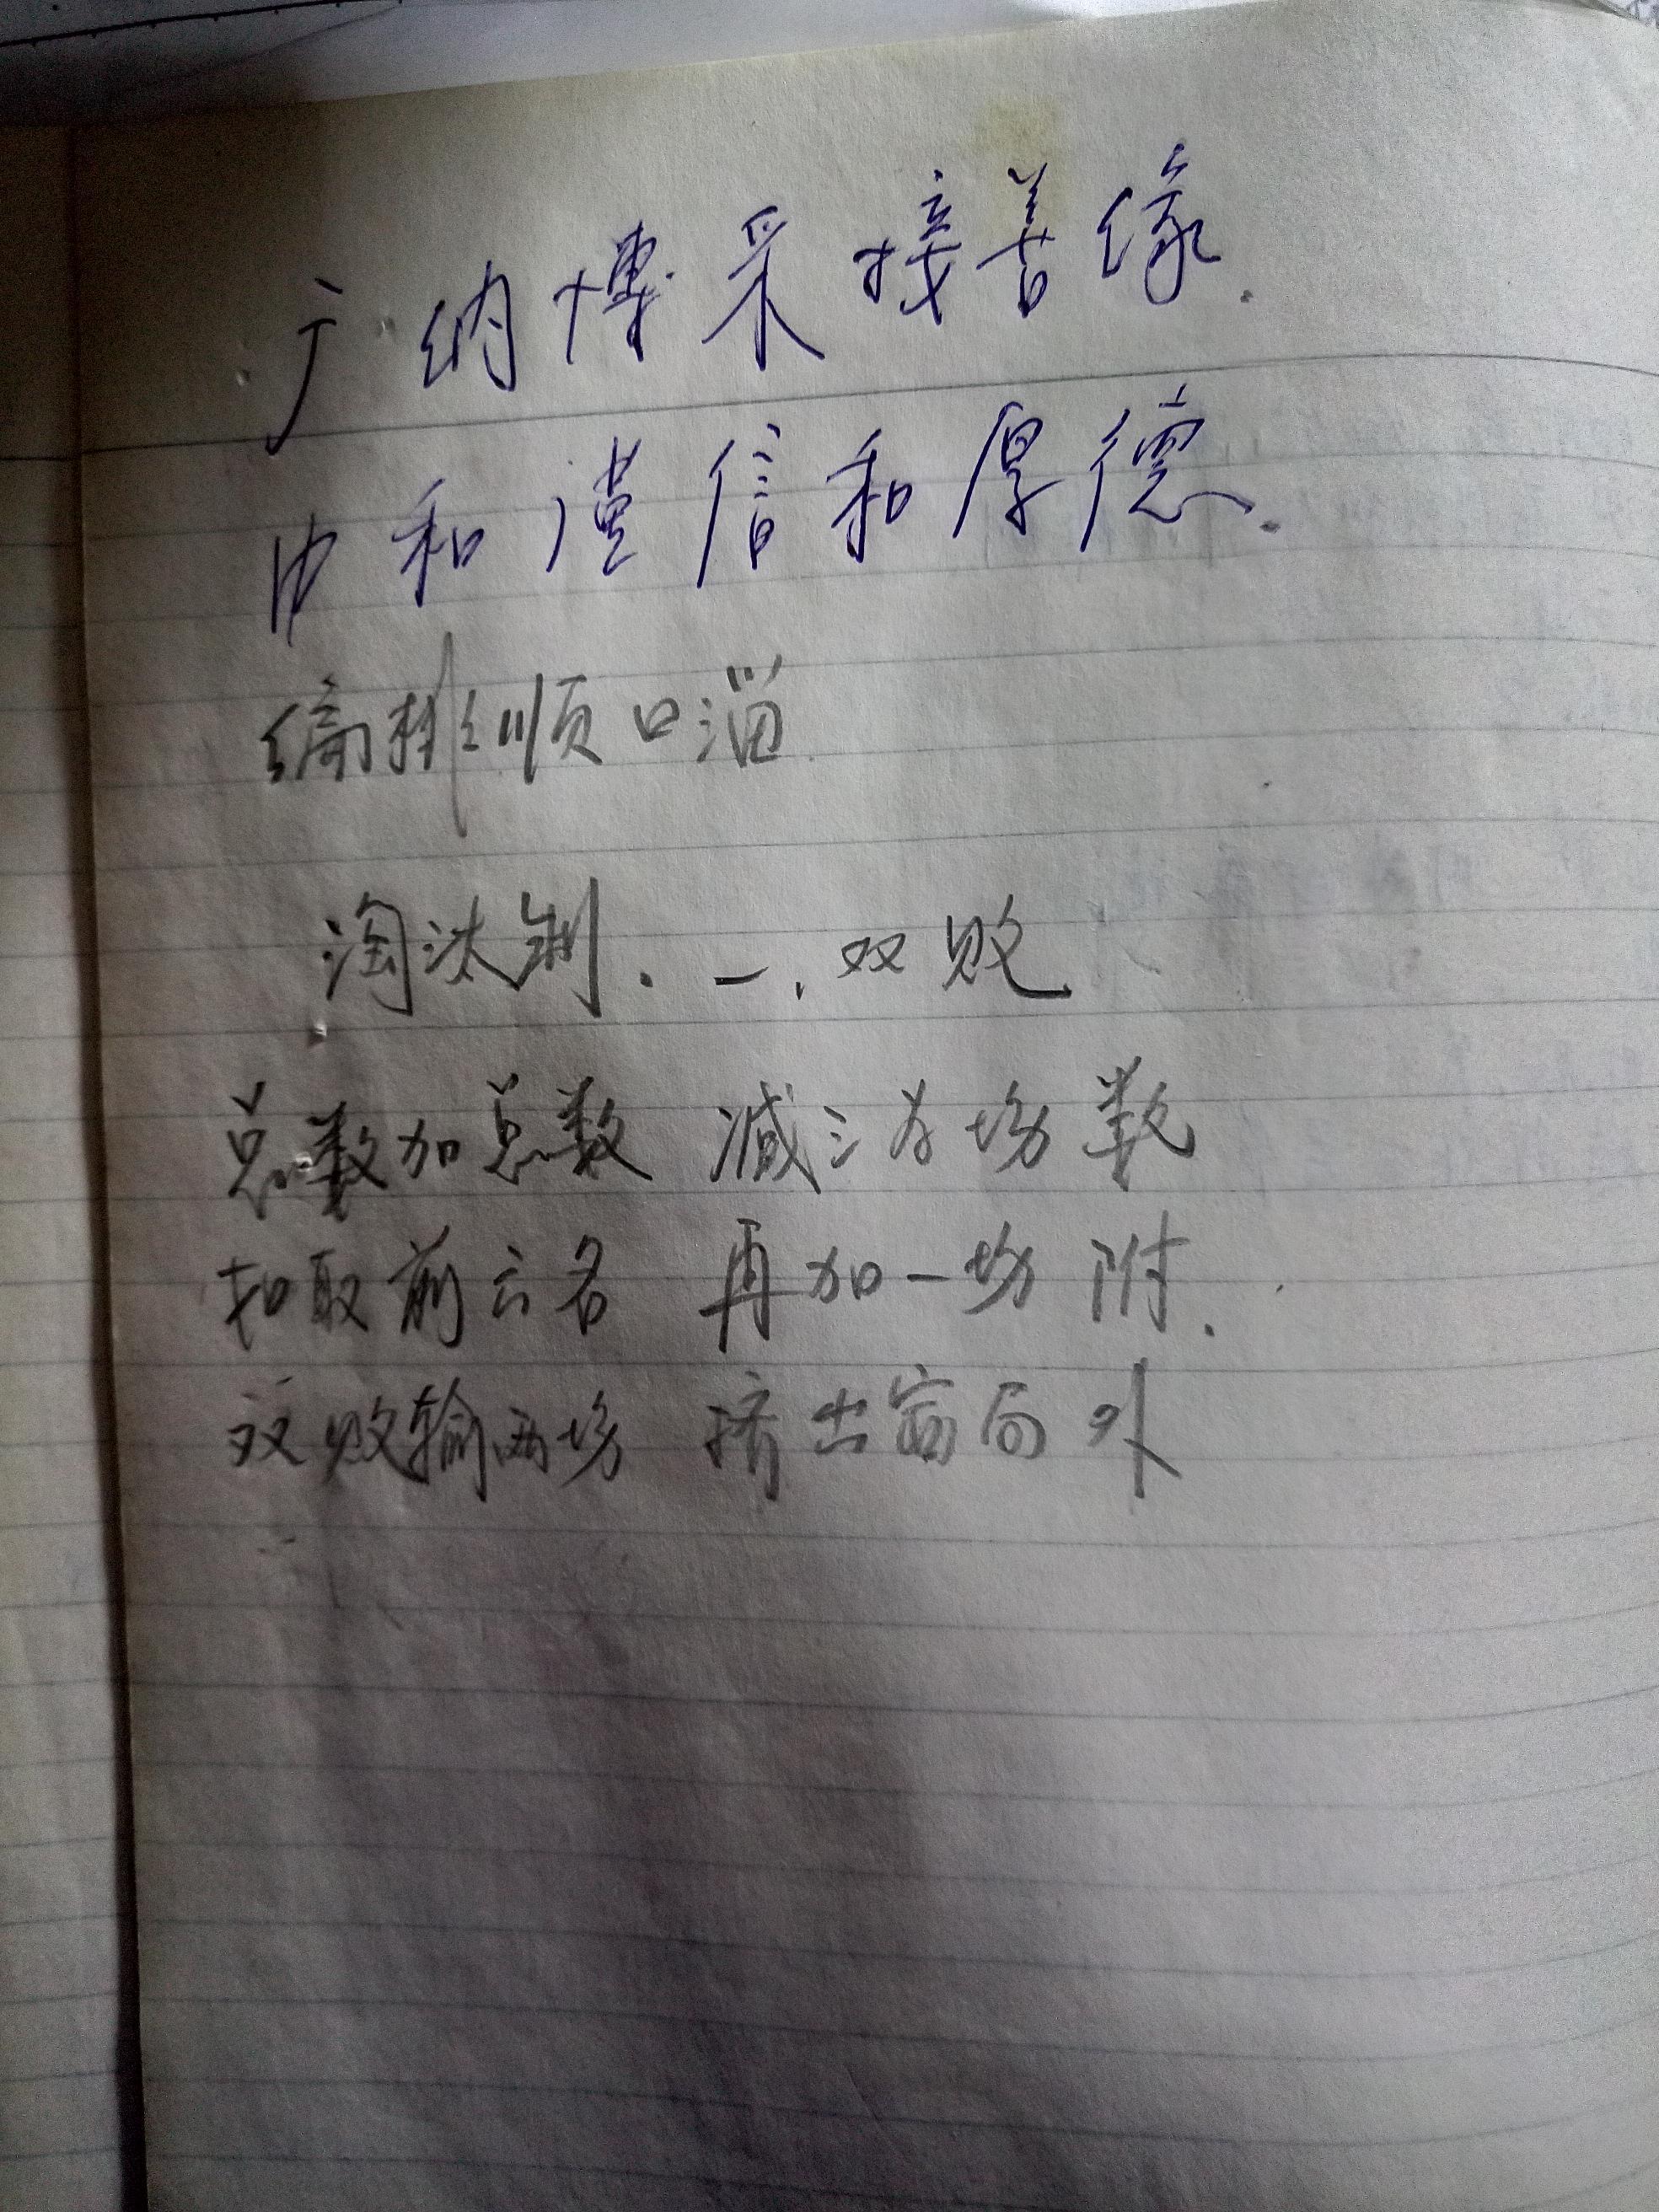 广纳博采接善缘.
中和谨信和厚德.
编排顺口溜
淘汰制. 一、双败
总数加总数 减三为场数
扣取前六名 再加一场附.
双败输两场 挤出窗局外